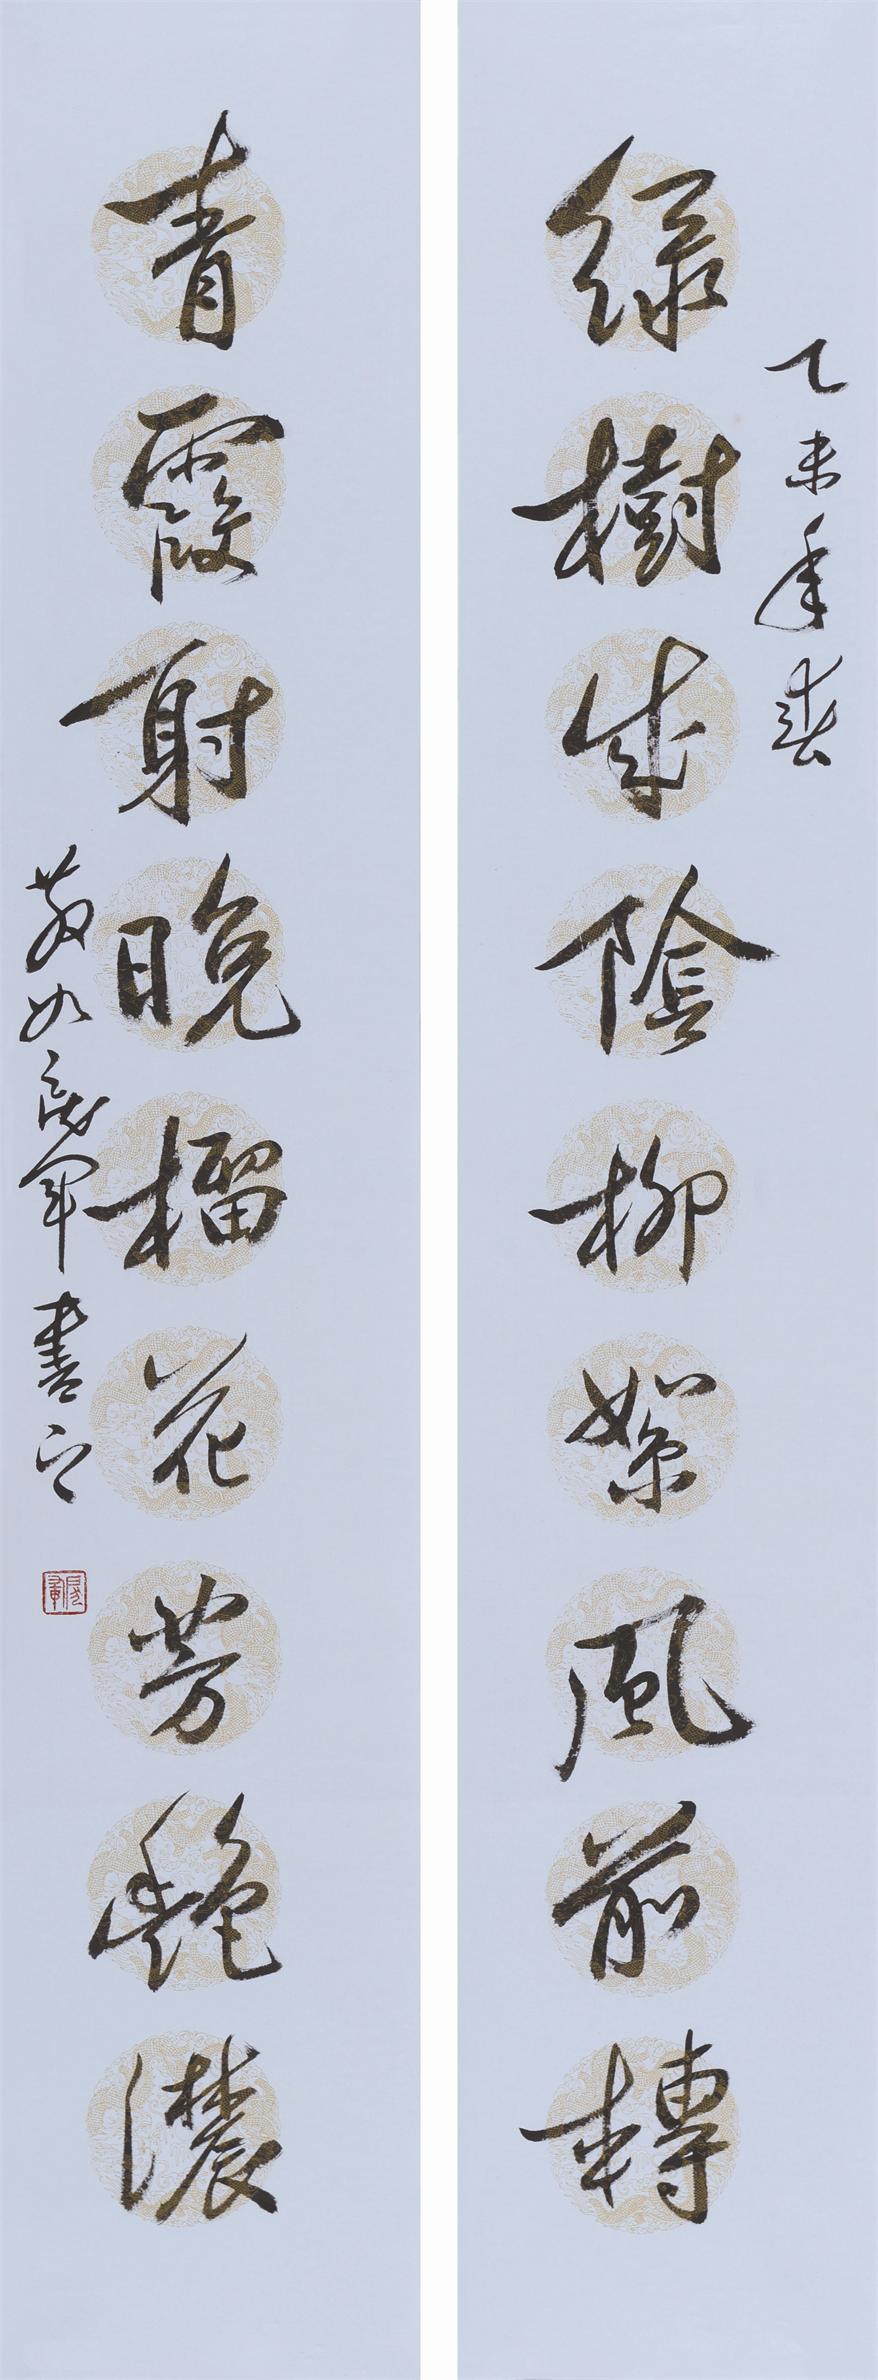 乙未年春
绿樹成陰柳絮風前轉
青霞射晚榴花芳艷濃
軍書